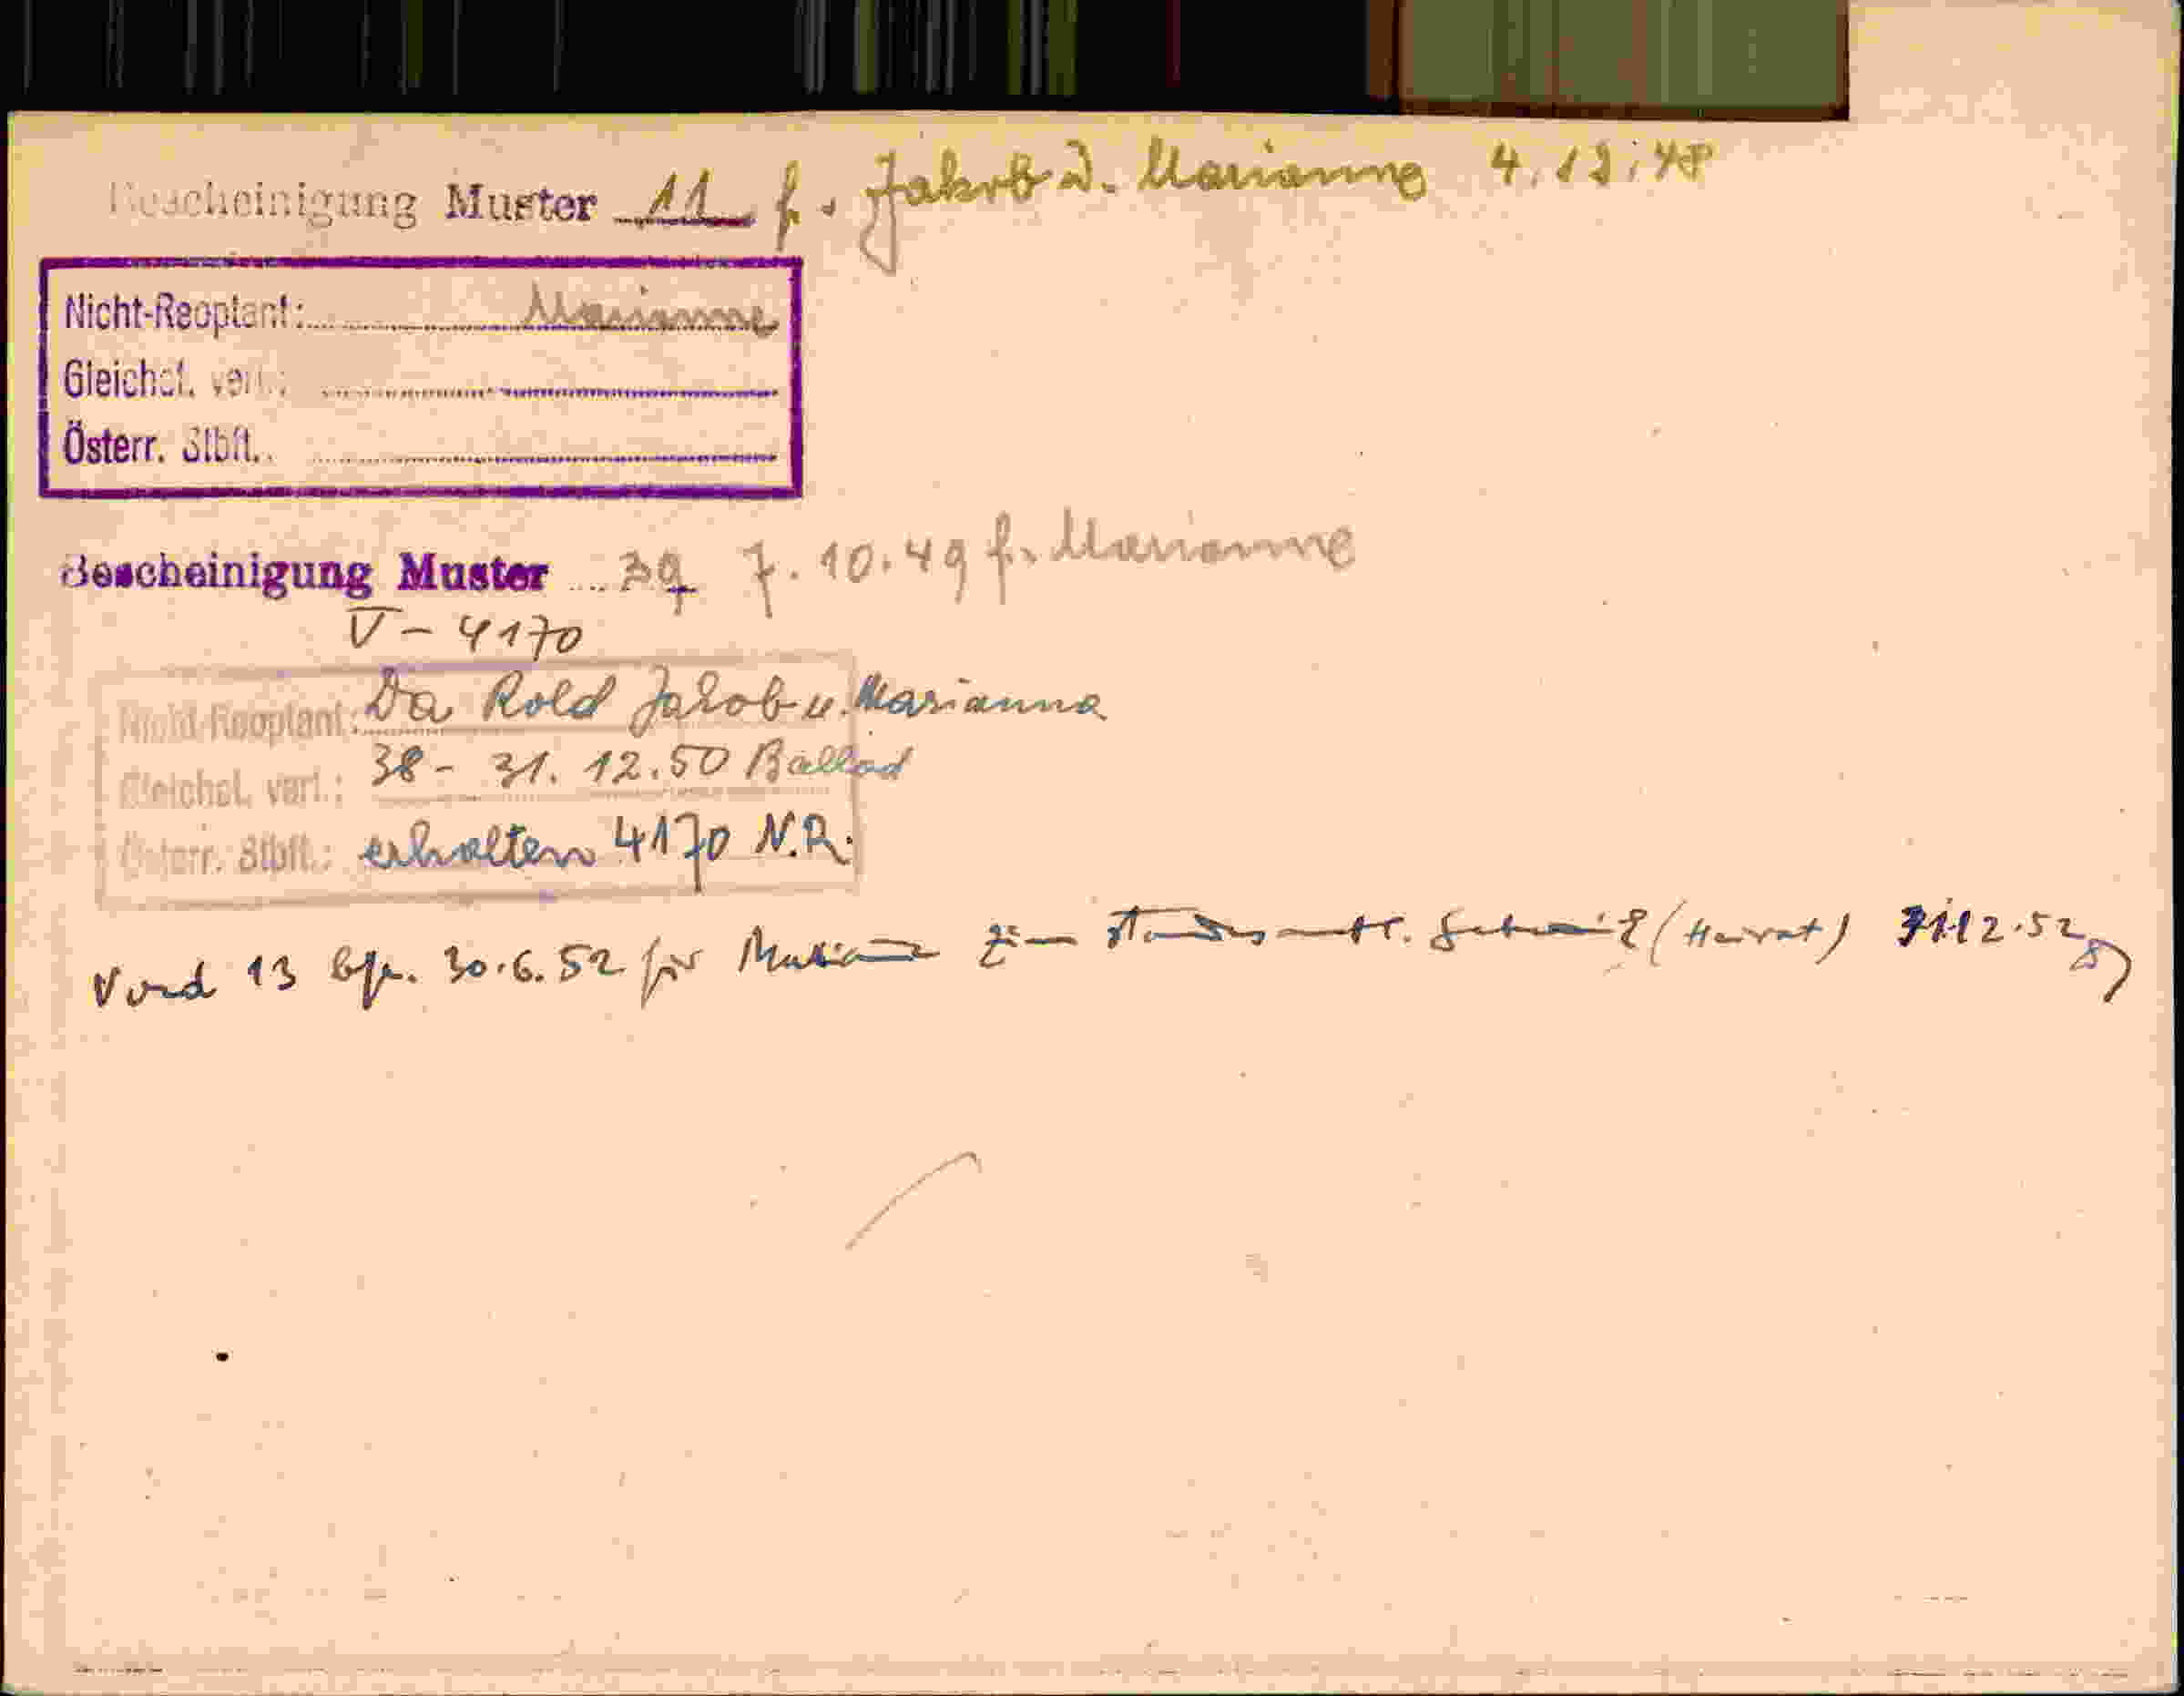 Bescheinigung Muster 11 f. Jakob u. Marianne 4.12.48
Nicht-Reoptant: Marianne
Gleichst. verl.:
Österr. Stbft.:
Bescheinigung Muster 39 7.10.49 f. Marianne
V - 4170
Nicht-Reoptant: Da Rold Jakob u. Marianna
Gleichst. verl.: 38 - 31.12.50 Ballad
Österr. Stbft.: erhalten 4170 N.R.
13 30.6.52 für Marianne zum standesamtl. (Heirat) 12.52